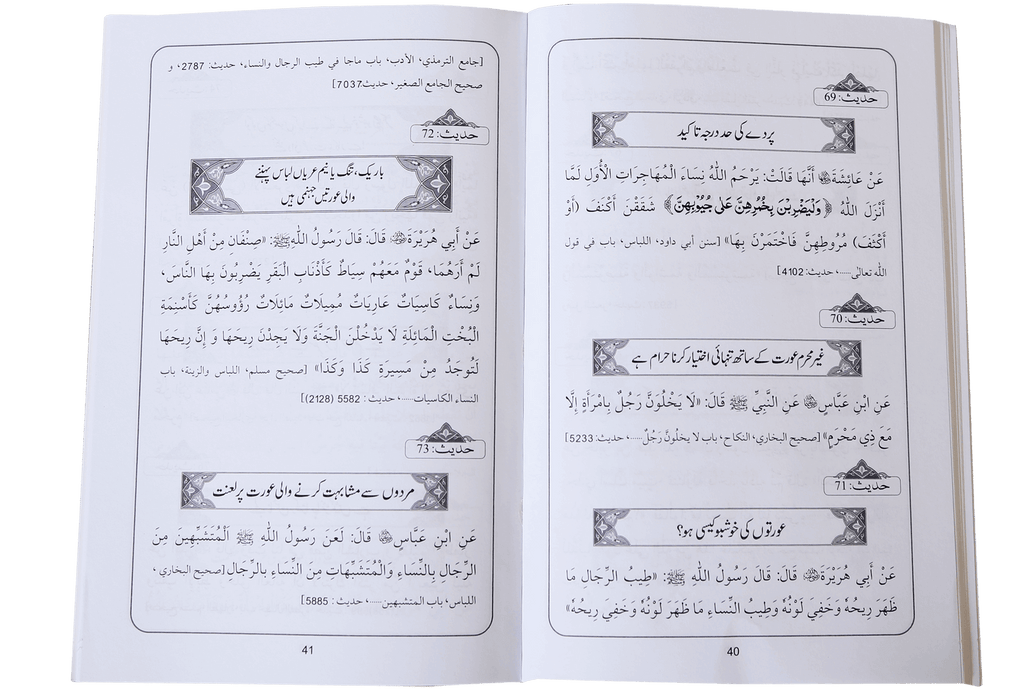 حدیث: 69
پردے کی حد درجہ تاکید
عَنْ عَائِشَةَ رضی اللہ عنہا أَنَّهَا قَالَتْ: يَرْحَمُ اللّٰهُ نِسَاءَ الْمُهَاجِرَاتِ الْأُوَلِ لَمَّا
أَنْزَلَ اللّٰهُ ﴿وَلْيَضْرِبْنَ بِخُمُرِهِنَّ عَلٰى جُيُوبِهِنَّ﴾ شَقَقْنَ أَكْنَفَ (أَوْ
أَكْثَفَ) مُرُوطِهِنَّ فَاخْتَمَرْنَ بِهَا» [سنن أبي داود، اللباس، باب في قول
الله تعالى.....، حديث: 4102]
حدیث: 70
غیر محرم عورت کے ساتھ تنہائی اختیار کرنا حرام ہے
عَنِ ابْنِ عَبَّاسٍ رضی اللہ عنہما عَنِ النَّبِيِّ ﷺ قَالَ: «لَا يَخْلُوَنَّ رَجُلٌ بِامْرَأَةٍ إِلَّا
مَعَ ذِي مَحْرَمٍ» [صحيح البخاري، النكاح، باب لا يخلونّ رجلٌ.....، حديث: 5233]
حدیث: 71
عورتوں کی خوشبو کیسی ہو؟
عَنْ أَبِي هُرَيْرَةَ رضی اللہ عنہ قَالَ: قَالَ رَسُولُ اللّٰهِ ﷺ: «طِيبُ الرِّجَالِ مَا
ظَهَرَ رِيحُهُ وَخَفِيَ لَوْنُهُ وَطِيبُ النِّسَاءِ مَا ظَهَرَ لَوْنُهُ وَخَفِيَ رِيحُهُ»
40
[جامع الترمذي، الأدب، باب ماجا في طيب الرجال والنساء، حديث: 2787، و
صحيح الجامع الصغير، حديث7037]
حدیث: 72
باریک، تنگ یا نیم عریاں لباس پہننے
والی عورتیں جہنمی ہیں
عَنْ أَبِي هُرَيْرَةَ رضی اللہ عنہ قَالَ: قَالَ رَسُولُ اللّٰهِ ﷺ: «صِنْفَانِ مِنْ أَهْلِ النَّارِ
لَمْ أَرَهُمَا، قَوْمٌ مَعَهُمْ سِيَاطٌ كَأَذْنَابِ الْبَقَرِ يَضْرِبُونَ بِهَا النَّاسَ،
وَنِسَاءٌ كَاسِيَاتٌ عَارِيَاتٌ مُمِيلَاتٌ مَائِلَاتٌ رُؤُوسُهُنَّ كَأَسْنِمَةِ
الْبُخْتِ الْمَائِلَةِ لَا يَدْخُلْنَ الْجَنَّةَ وَلَا يَجِدْنَ رِيحَهَا وَ إِنَّ رِيحَهَا
لَتُوجَدُ مِنْ مَسِيرَةِ كَذَا وَكَذَا» [صحيح مسلم، اللباس والزينة، باب
النساء الكاسيات.....، حديث: 5582 (2128)]
حدیث: 73
مردوں سے مشابہت کرنے والی عورت پر لعنت
عَنِ ابْنِ عَبَّاسٍ رضی اللہ عنہما قَالَ: لَعَنَ رَسُولُ اللّٰهِ ﷺ الْمُتَشَبِّهِينَ مِنَ
الرِّجَالِ بِالنِّسَاءِ وَالْمُتَشَبِّهَاتِ مِنَ النِّسَاءِ بِالرِّجَالِ [صحيح البخاري،
اللباس، باب المتشبهين.....، حديث: 5885]
41